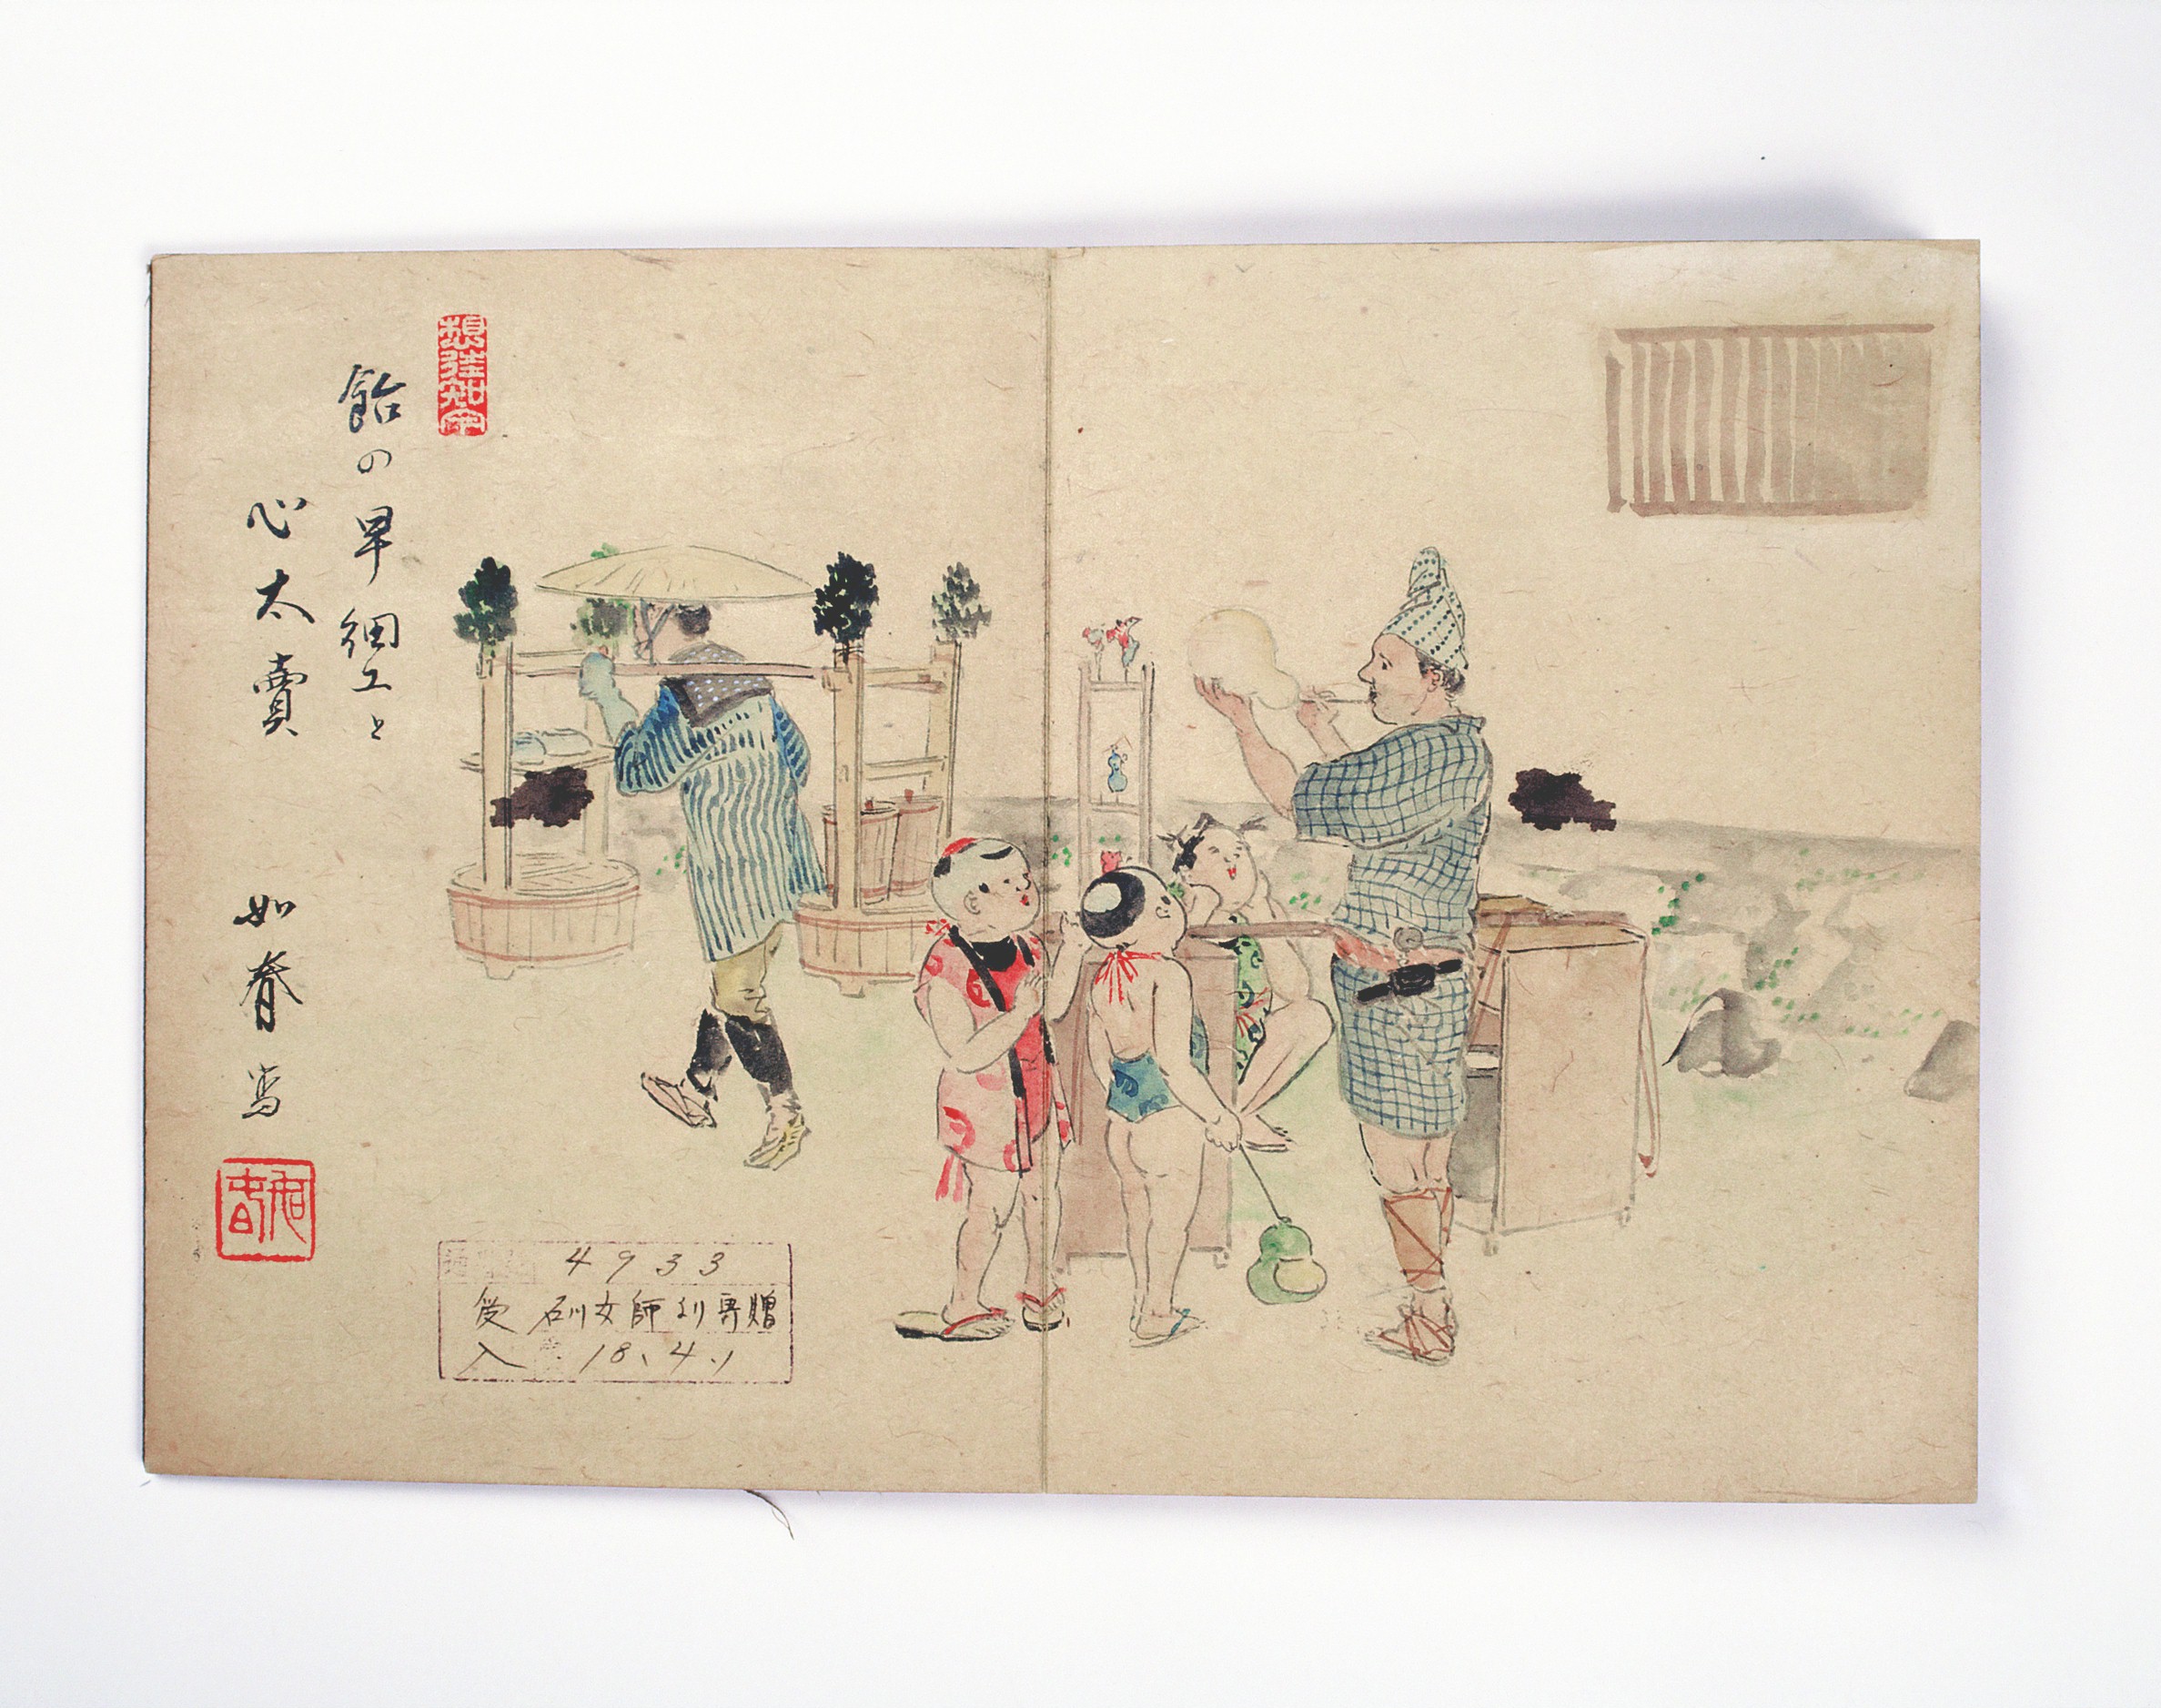 飴の早細工と
心太賣
如春写
4933
受 石川女師ヨリ寄贈
入 18.4.1